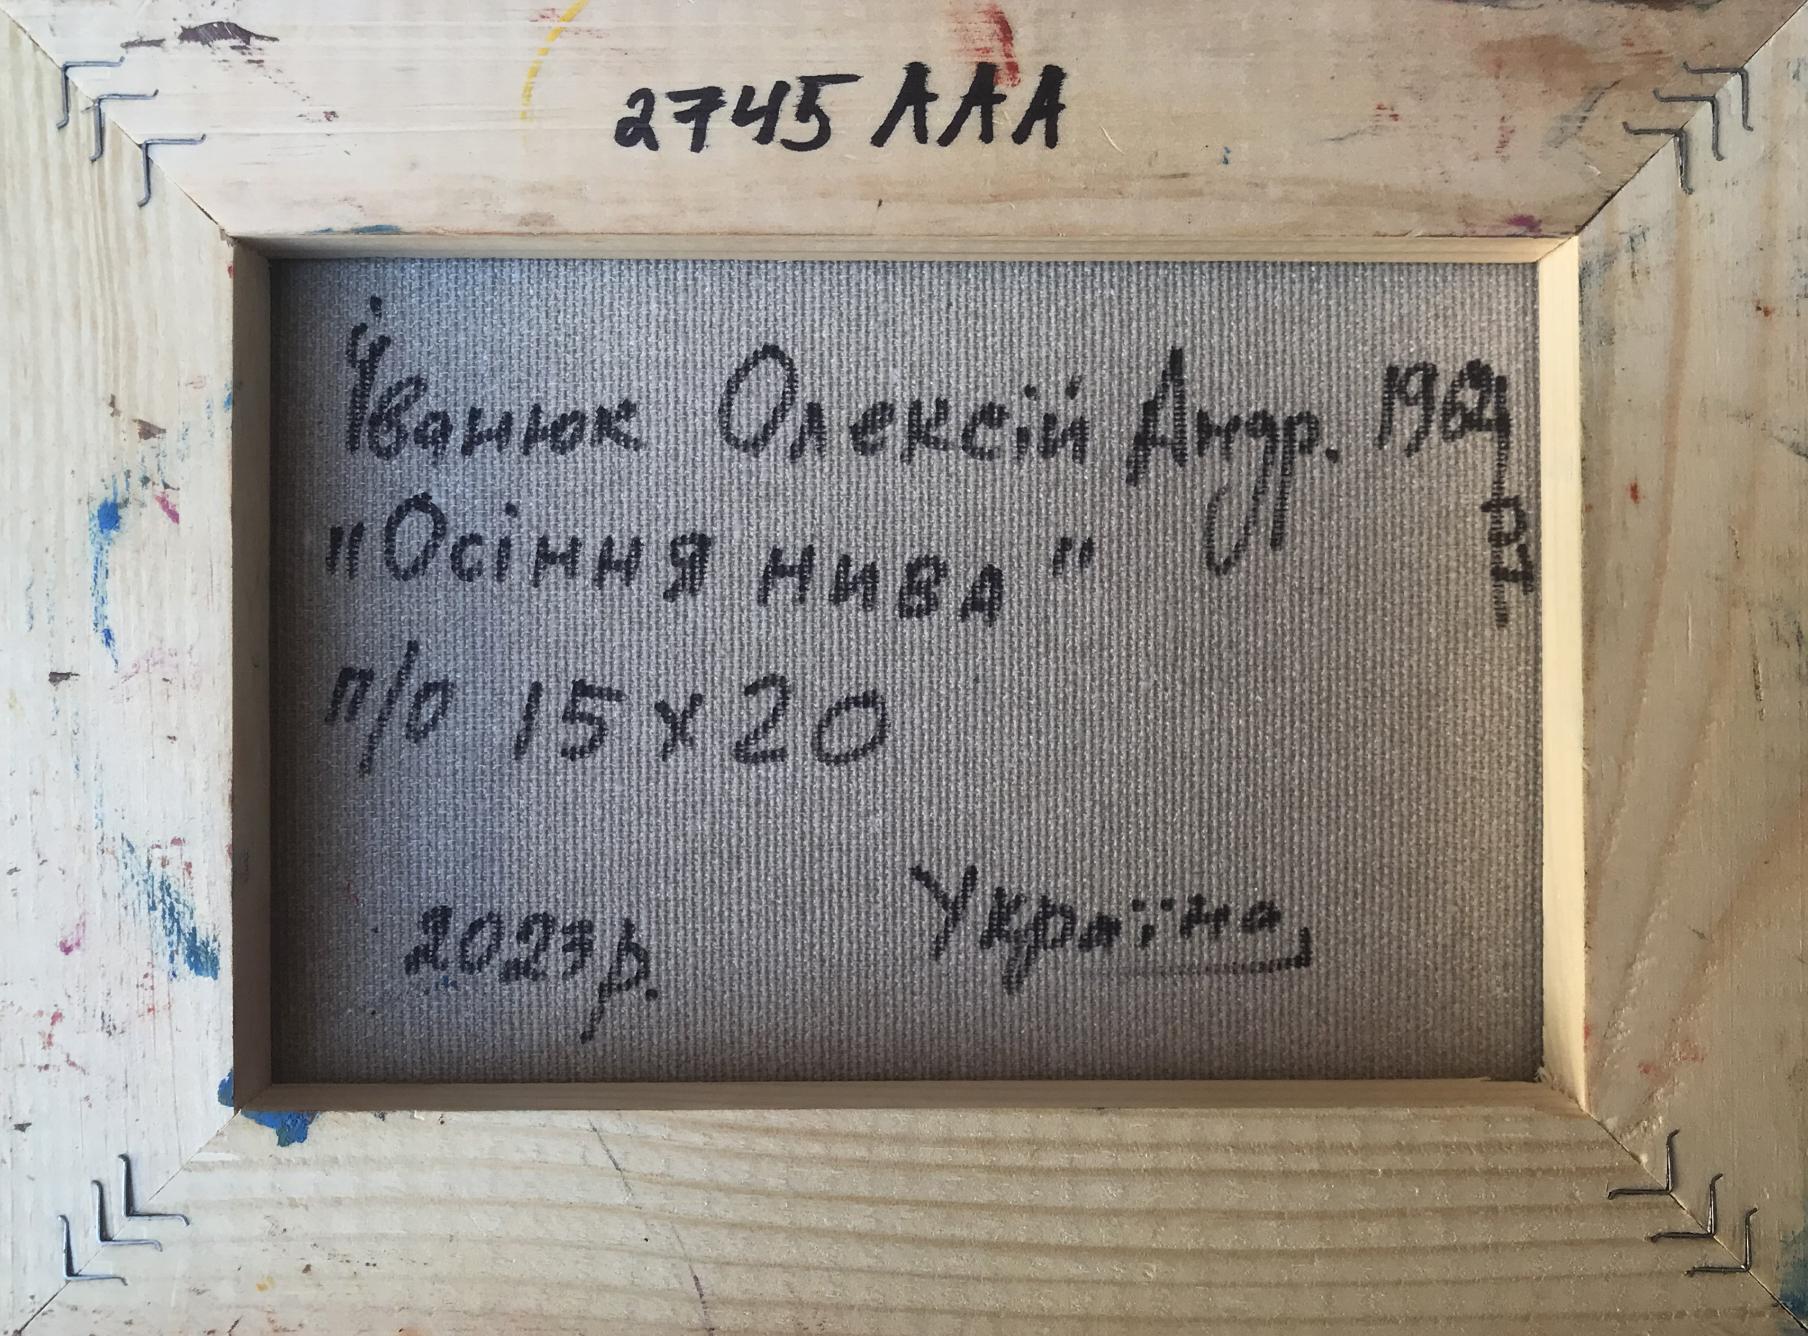 2745 ААА
Іванюк Олексій Андр. 1962
рт
"Осіння нива"
п/о 15 х 20
2023 р.
Україна